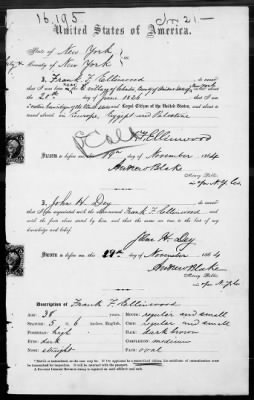 16,195
United States of America.
State of New York
County of New York
I, Frank F. Ellinwood do swear
that I was born in the village of Clinton, County of Oneida, on the
20th day of June 1826; that I am
a native born citizen of the United States and Loyal Citizen of the United States, and about to
travel in Europe, Egypt and Palestine
F. F. Ellinwood
Sworn to before me this day of November 1864
Andrew Blake
Notary Public
in for N.Y. Co.
I, John H. Dey do swear
that I am acquainted with the above-named Frank F. Ellinwood and
with the facts above stated by him, and that the same are true to the best of my
knowledge and belief.
John H. Dey
Sworn to before me this day of November 1864
Andrew Blake
Notary Public
in for N.Y. Co.
Description of Frank F. Ellinwood
Age: 38
Stature: 5 6 inches, English.
Forehead: high
Eyes: dark
Nose: straight
Mouth: regular and small
Chin: regular and small
Hair: dark brown
Complexion: medium
Face: oval